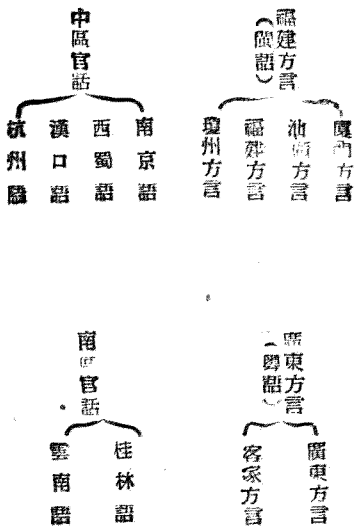 福建方言
（閩語）
廈門方言
方言
福建方言
瓊州方言
中區官話
南京語
西蜀語
漢口語
杭州語
廣東方言
（粵語）
廣東方言
客家方言
南區官話
桂林語
雲南語